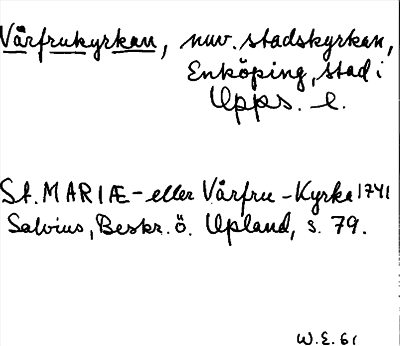 Vårfrukyrkan, nuv. stadskyrkan,
Enköping, stad i
Upps. l.
St. MARIÆ - eller Vårfru - Kyrka 1741
Salvius, Beskr. ö. Upland, s. 79.
W.E. 61